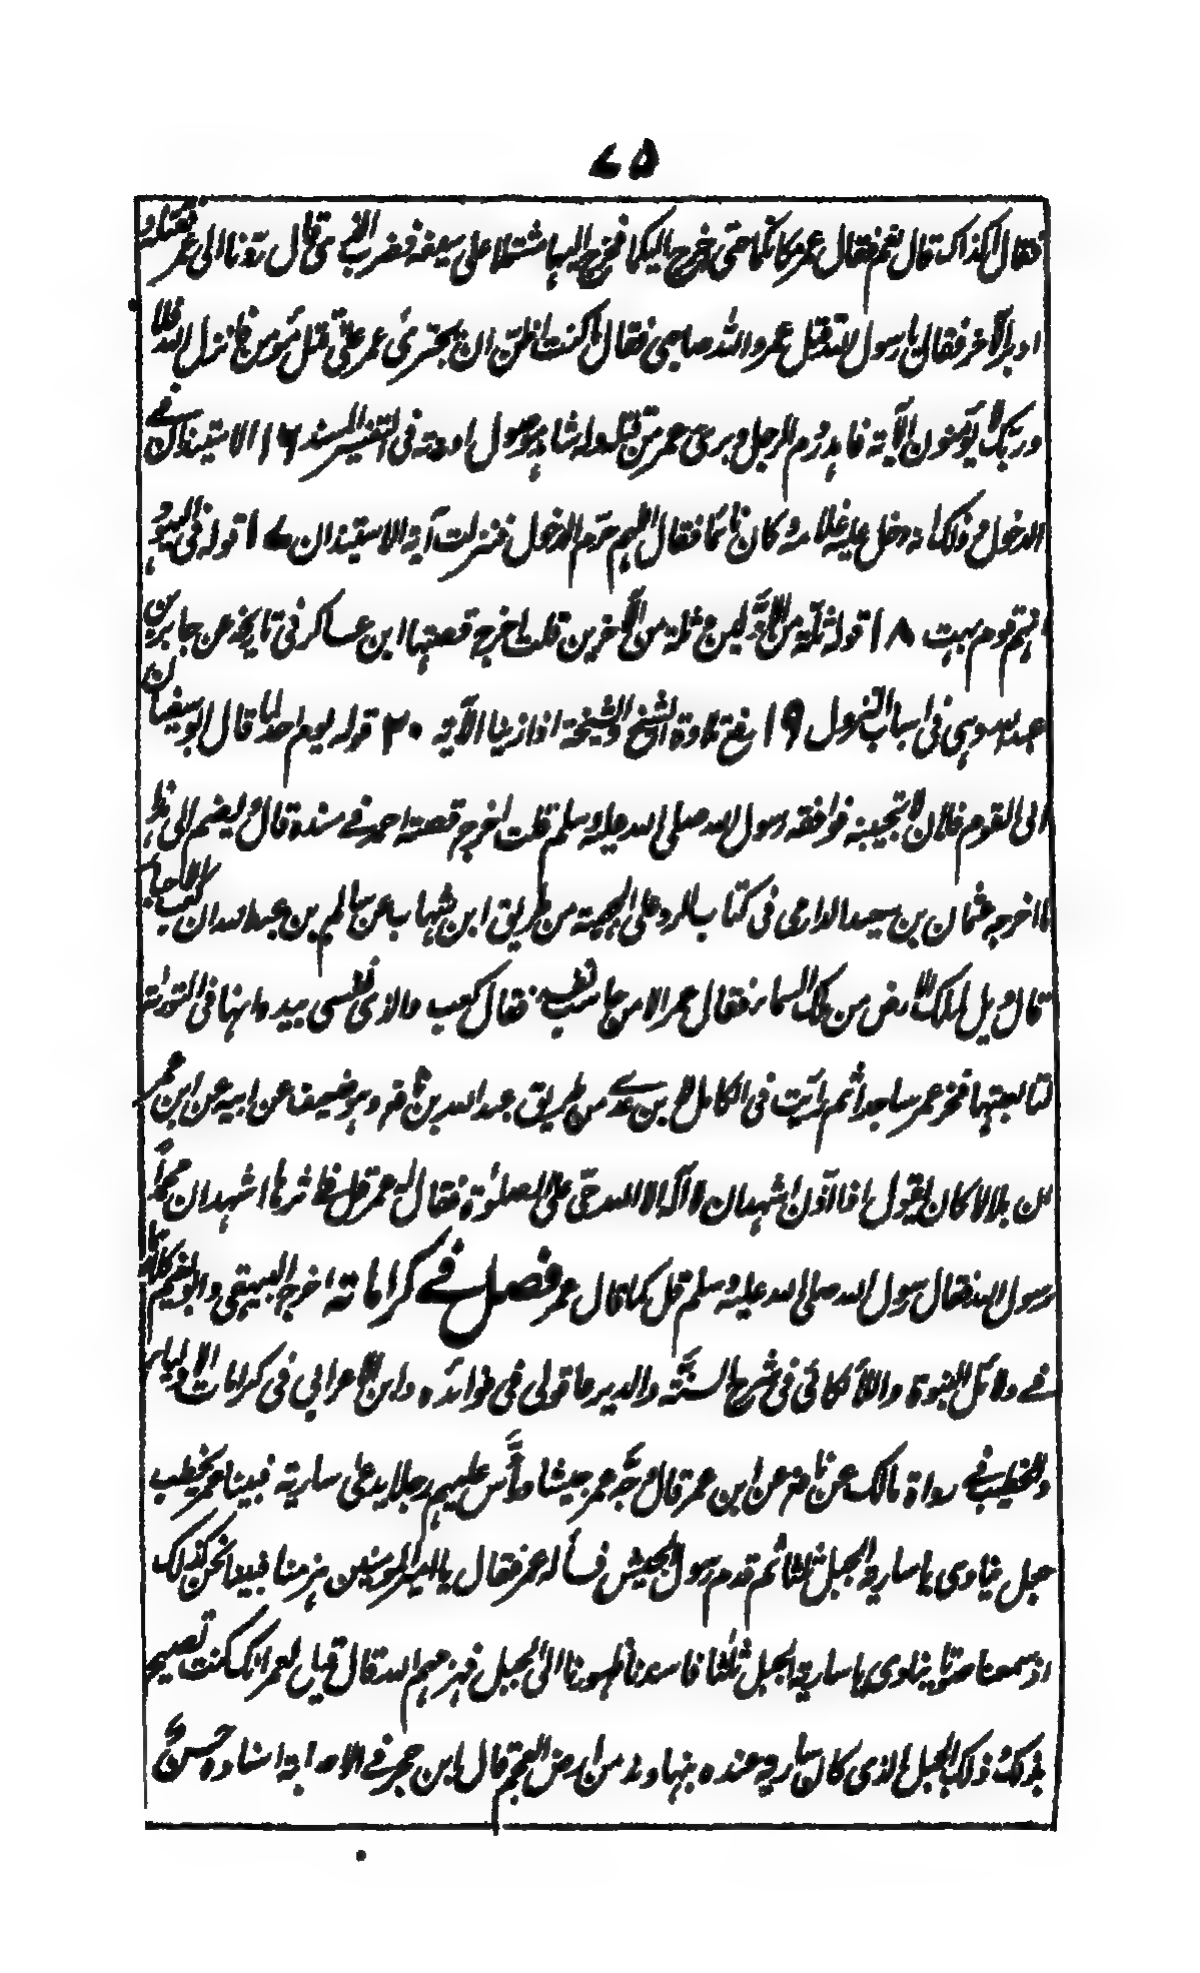 ٧٥
فقال اكذاك قال نعم فقال عمر مكانكما حتى اخرج اليكما فخرج اليهما مشتملا على سيفه فضرب الذي قال ردنا الى عمر فقتله و
ادبر الآخر فقال يا رسول الله قتل عمر والله صاحبي فقال ما كنت اظن ان يجترئ عمر على قتل مؤمن فانزل الله فلا
وربك لا يؤمنون الآية فاهدر دم الرجل وبرئ عمر من قتله وله شاهد موصول اوردته في التفسير المسند ١٦ الاستيذان في
الدخول وذلك انه دخل عليه غلامه وكان نائما فقال اللهم حرم الدخول فنزلت آية الاستيذان ١٧ قوله في اليهود
انهم قوم بهت ١٨ قوله ثلة من الاولين وثلة من الآخرين قلت اخرج قصتها ابن عساكر في تاريخه عن جابر بن
عبد الله وهي في اسباب النزول ١٩ رفع تلاوة الشيخ والشيخة اذا زنيا الآية ٢٠ قوله يوم احد لما قال ابو سفيان
افى القوم فلان لا نجيبنه فوافقه رسول الله صلى الله عليه وسلم قلت اخرج قصته احمد في مسنده قال ويضم الى هذا
ما اخرجه عثمان بن سعيد الدارمي في كتاب الرد على الجهمية من طريق ابن شهاب عن سالم بن عبد الله ان كعب الاحبار
قال ويل لملك الارض من ملك السماء فقال عمر الا من حاسب نفسه فقال كعب والذي نفسي بيده انها في التوراة
لتابعتها فخر عمر ساجدا ثم رايت في الكامل لابن عدي من طريق عبد الله بن نافع وهو ضعيف عن ابيه عن ابن عمر
ان بلالا كان يقول اذا اذن اشهد ان لا اله الا الله حي على الصلوة فقال له عمر قل في اثرها اشهد ان محمدا
رسول الله فقال رسول الله صلى الله عليه وسلم قل كما قال عمر فصل في كراماته اخرج البيهقي وابو نعيم كلاهما
في دلائل النبوة واللالكائي في شرح السنة والدير عاقولي في فوائده وابن الاعرابي في كرامات الاولياء
والخطيب في رواة مالك عن نافع عن ابن عمر قال وجه عمر جيشا ورأس عليهم رجلا يدعى سارية فبينا عمر يخطب
جعل ينادي يا سارية الجبل ثلثا ثم قدم رسول الجيش فسأله عمر فقال يا امير المؤمنين هزمنا فبينا نحن كذلك
اذ سمعنا صوتا ينادي يا سارية الجبل ثلثا فاسندنا ظهورنا الى الجبل فهزمهم الله قال قيل لعمر انك كنت تصيح
بذلك وذلك الجبل الذي كان سارية عنده بنهاوند من ارض العجم قال ابن حجر في الاصابة اسناده حسن و